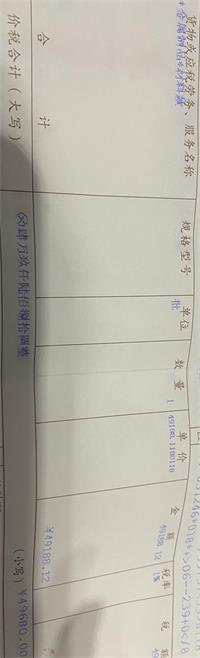 货物或应税劳务、服务名称 规格型号 单位 数量 单价 金额 税率 税额
*金属制品*材料费 批 1 49188.1188118 49188.12 1%
合计 ¥49188.12
价税合计（大写） ⊗肆万玖仟陆佰捌拾圆整 （小写）¥49680.00